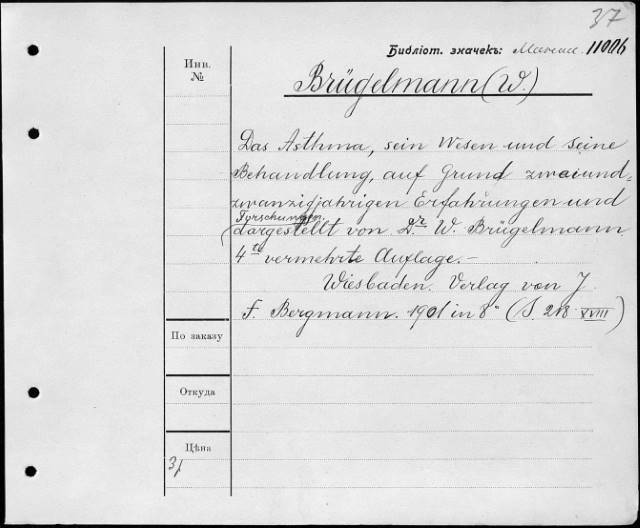 37
Библіот. значекъ: 11006
Инв.
№
Brügelmann (W.)
Das Asthma, sein Wesen und seine
Behandlung, auf Grund zweiund-
zwanzigjahrigen Erfahrungen und
Forschungen.
dargestellt von Dr W. Brügelmann.
4te vermehrte Auflage. -
Wiesbaden. Verlag von J.
F. Bergmann. 1901 in 8° (S. 218 XVIII)
По заказу
Откуда
Цѣна